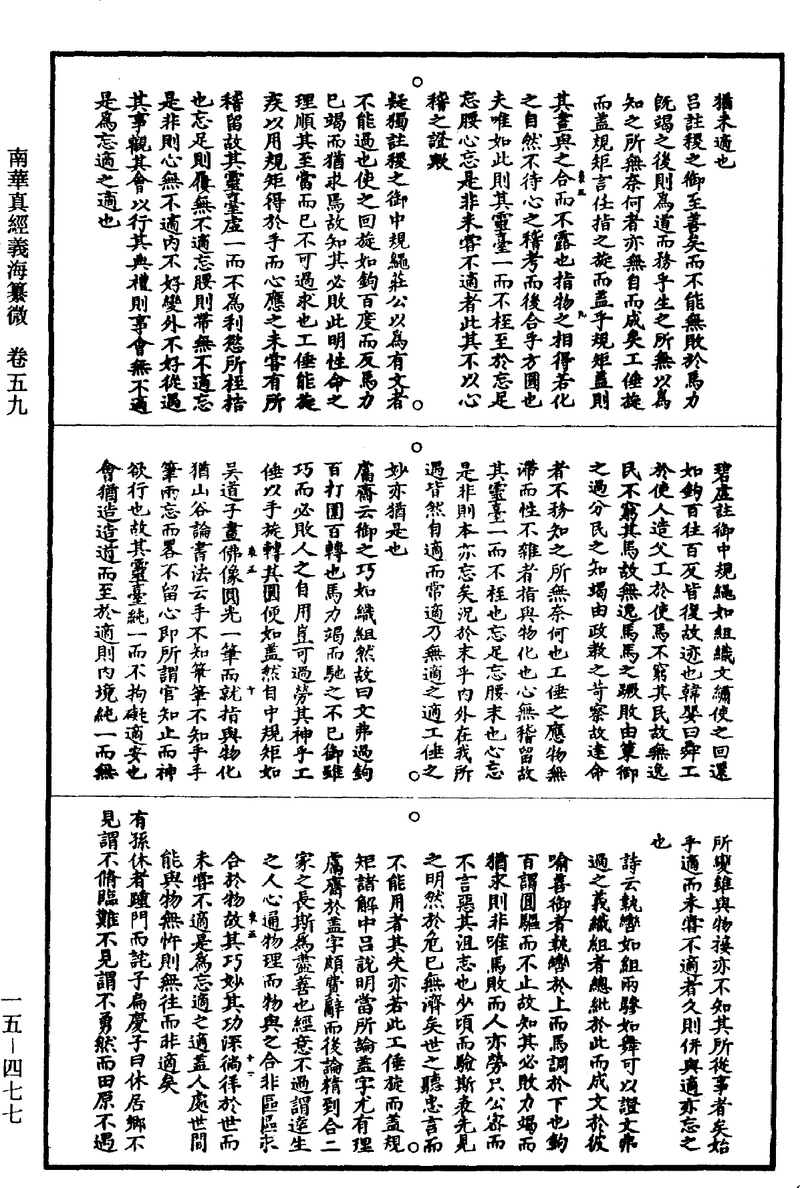 猶未適也
呂註稷之御至善矣而不能無敗於馬力
既竭之後則為道而務乎生之所無以為
知之所無奈何者亦無自而成矣工倕旋
而蓋規矩言任指之旋而蓋乎規矩蓋則
其畫與之合而不露也指物之相得若化
之自然不待心之稽考而後合乎方圓也
夫唯如此則其靈臺一而不桎至於忘足
忘腰心忘是非未嘗不適者此其不以心
稽之證歟
疑獨註稷之御中規繩莊公以為有文者
不能過也使之回旋如鉤百度而反馬力
已竭而猶求馬故知其必敗此明性命之
理順其至當而已不可過求也工倕能旋
疾以用規矩得於手而心應之未嘗有所
稽留故其靈臺虛一而不為利慾所桎梏
也忘足則履無不適忘腰則帶無不適忘
是非則心無不適內不好變外不好從遇
其事觀其會以行其典禮則事會無不適
是為忘適之適也
碧虛註御中規繩如組織文繡使之回還
如鉤百往百反皆復故迹也韓嬰曰舜工
於使人造父工於使馬不窮其民故無逸
民不窮其馬故無逸馬馬之蹶敗由策御
之過分民之知竭由政教之苛察故達命
者不務知之所無奈何也工倕之應物無
滯而性不雜者指與物化也心無稽留故
其靈臺一而不桎也忘足忘腰末也心忘
是非則本亦忘矣況於末乎內外在我所
過皆然自適而常適乃無適之適工倕之
妙亦猶是也
鬳齋云御之巧如織組然故曰文弗過鉤
百打圍百轉也馬力竭而馳之不已御雖
巧而必敗人之自用豈可過勞其神乎工
倕以手旋轉其圓便如蓋然自中規矩如
吳道子畫佛像圓光一筆而就指與物化
猶山谷論書法云手不知筆筆不知手手
筆兩忘而畧不留心即所謂官知止而神
欲行也故其靈臺純一而不拘礙適安也
會猶造造道而至於適則內境純一而無
所變雖與物接亦不知其所從事者矣始
乎適而未嘗不適者久則併與適亦忘之
也
詩云執轡如組兩驂如舞可以證文弗
過之義織組者總紕於此而成文於彼
喻善御者執轡於上而馬調於下也鉤
百謂圓驅而不止故知其必敗力竭而
猶求則非唯馬敗而人亦勞只公密而
不言惡其沮志也少頃而驗斯表先見
之明然於危已無濟矣世之聽忠言而
不能用者其失亦若此工倕旋而蓋規
矩諸解中呂說明當所論蓋字尤有理
鬳齋於蓋字頗費辭而後論精到合二
家之長斯為盡善也經意不過謂達生
之人心通物理而物與之合非區區求
合於物故其巧妙其功深徜徉於世而
未嘗不適是為忘適之適蓋人處世間
能與物無忤則無往而非適矣
有孫休者踵門而詫子扁慶子曰休居鄉不
見謂不脩臨難不見謂不勇然而田原不遇
南華真經義海纂微　卷五九
一五－四七七